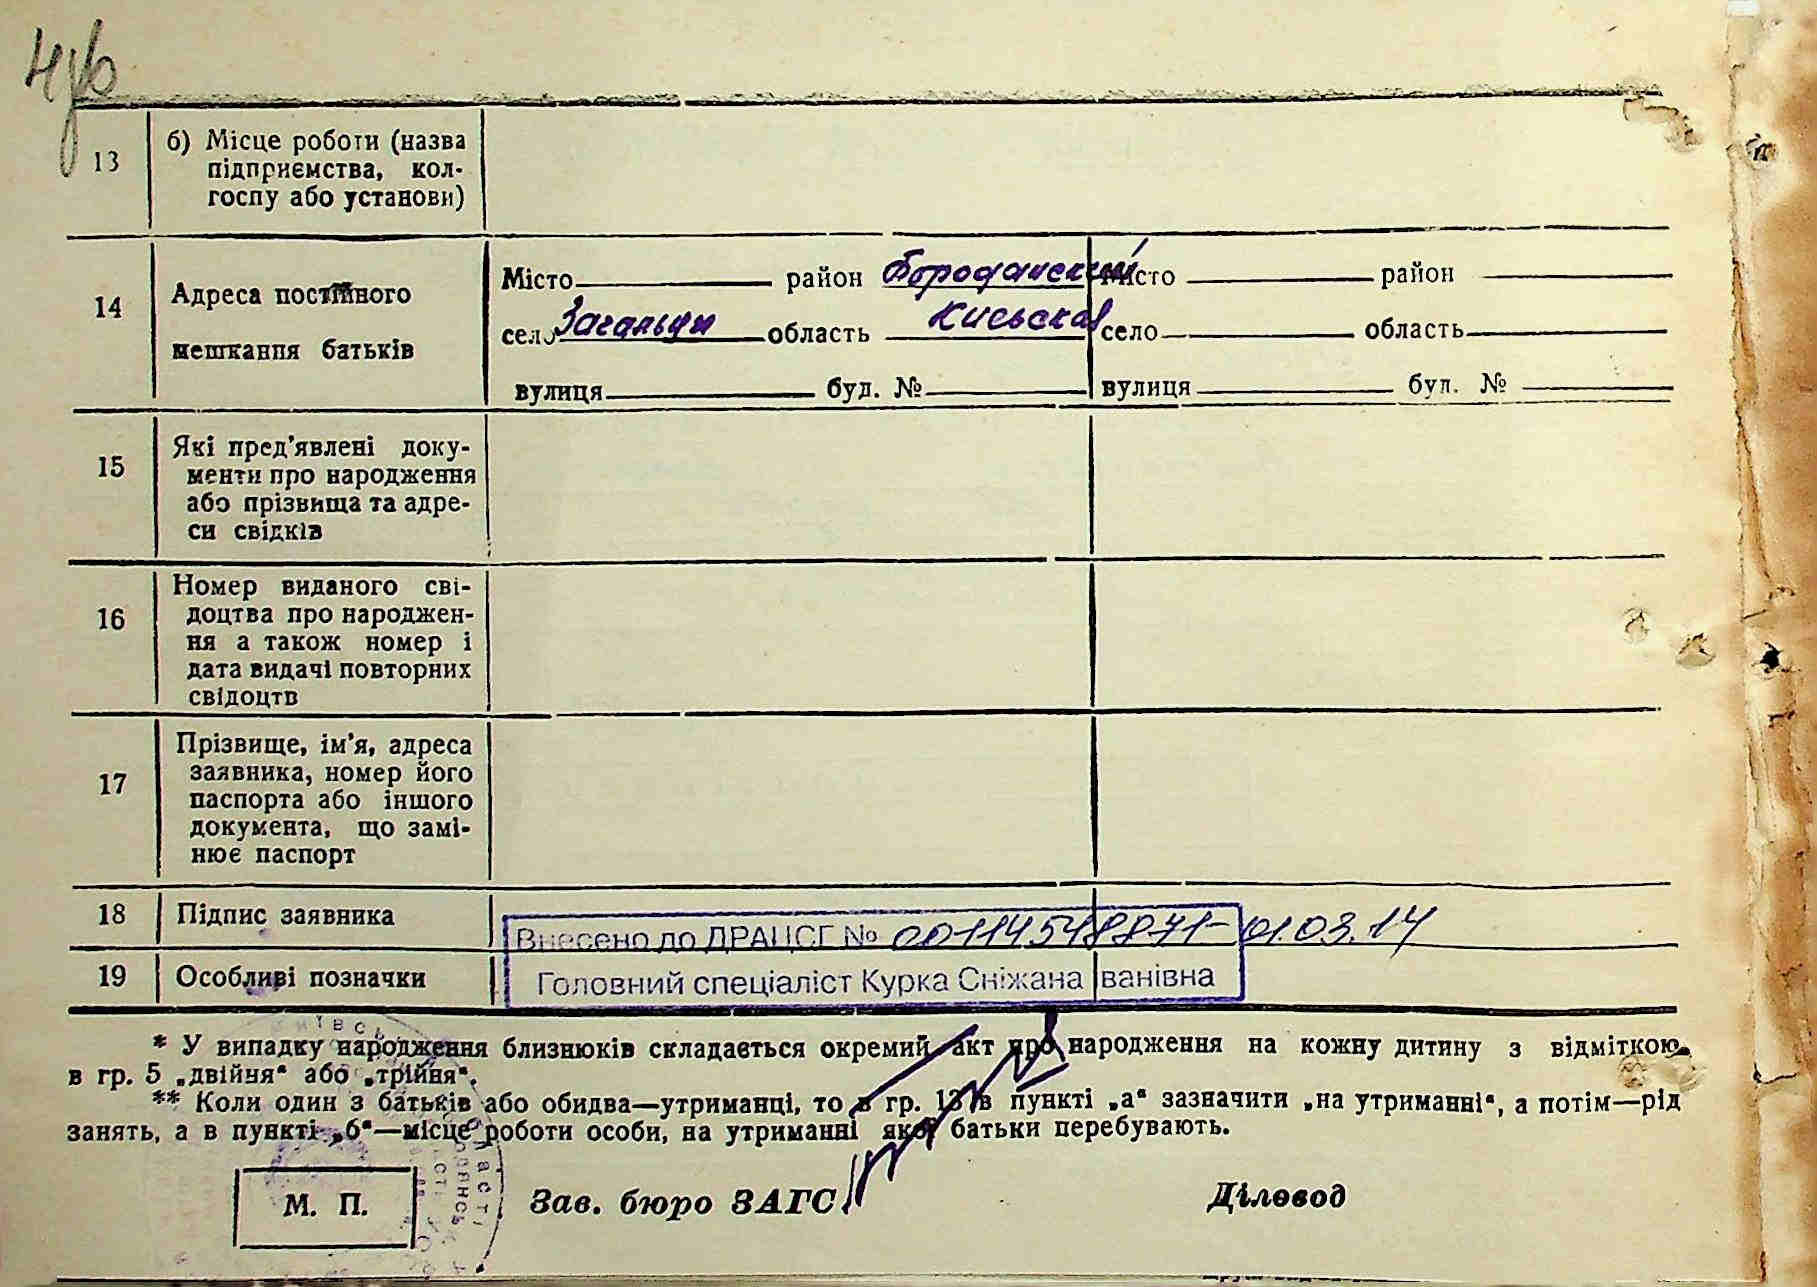 13
б) Місце роботи (назва
підприємства, кол-
госпу або установи)
14
Адреса постійного
мешкання батьків
Місто район Бородянский Місто район
село Загальцы область Киевская село область
вулиця буд. № вулиця буд. №
15
Які пред'явлені доку-
менти про народження
або прізвища та адре-
си свідків
16
Номер виданого сві-
доцтва про народжен-
ня а також номер і
дата видачі повторних
свідоцтв
17
Прізвище, ім'я, адреса
заявника, номер його
паспорта або іншого
документа, що замі-
нює паспорт
18 Підпис заявника
Внесено до ДРАЦСГ № 00114548871- 01.03.14
19 Особливі позначки
Головний спеціаліст Курка Сніжана Іванівна
* У випадку народження близнюків складається окремий акт про народження на кожну дитину з відміткою
в гр. 5 „двійня" або „трійня".
** Коли один з батьків або обидва—утриманці, то в гр. 13 в пункті „а" зазначити „на утриманні", а потім—рід
занять, а в пункті „б"—місце роботи особи, на утриманні якої батьки перебувають.
М. П. Зав. бюро ЗАГС Діловод